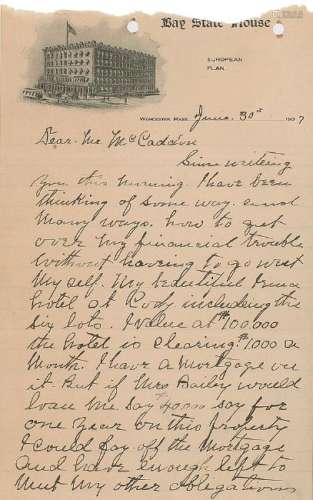 Bay State House
EUROPEAN
PLAN.
WORCESTER, MASS. June 30st 1907
Dear Mr McCaddon
Since writing
you this morning. I have been
thinking of some way. and
Many ways. how to get
over My financial trouble
without having to go west
My self. My beautiful Irma
hotel at Cody including the
six lots. I value at $100,000
the hotel is clearing $1,000 a
Month. I have a Mortgage on
it. But if Mrs Bailey would
loan Me say for
one year on this property
I could pay off the Mortgage
And have enough left to
Meet My other obligations